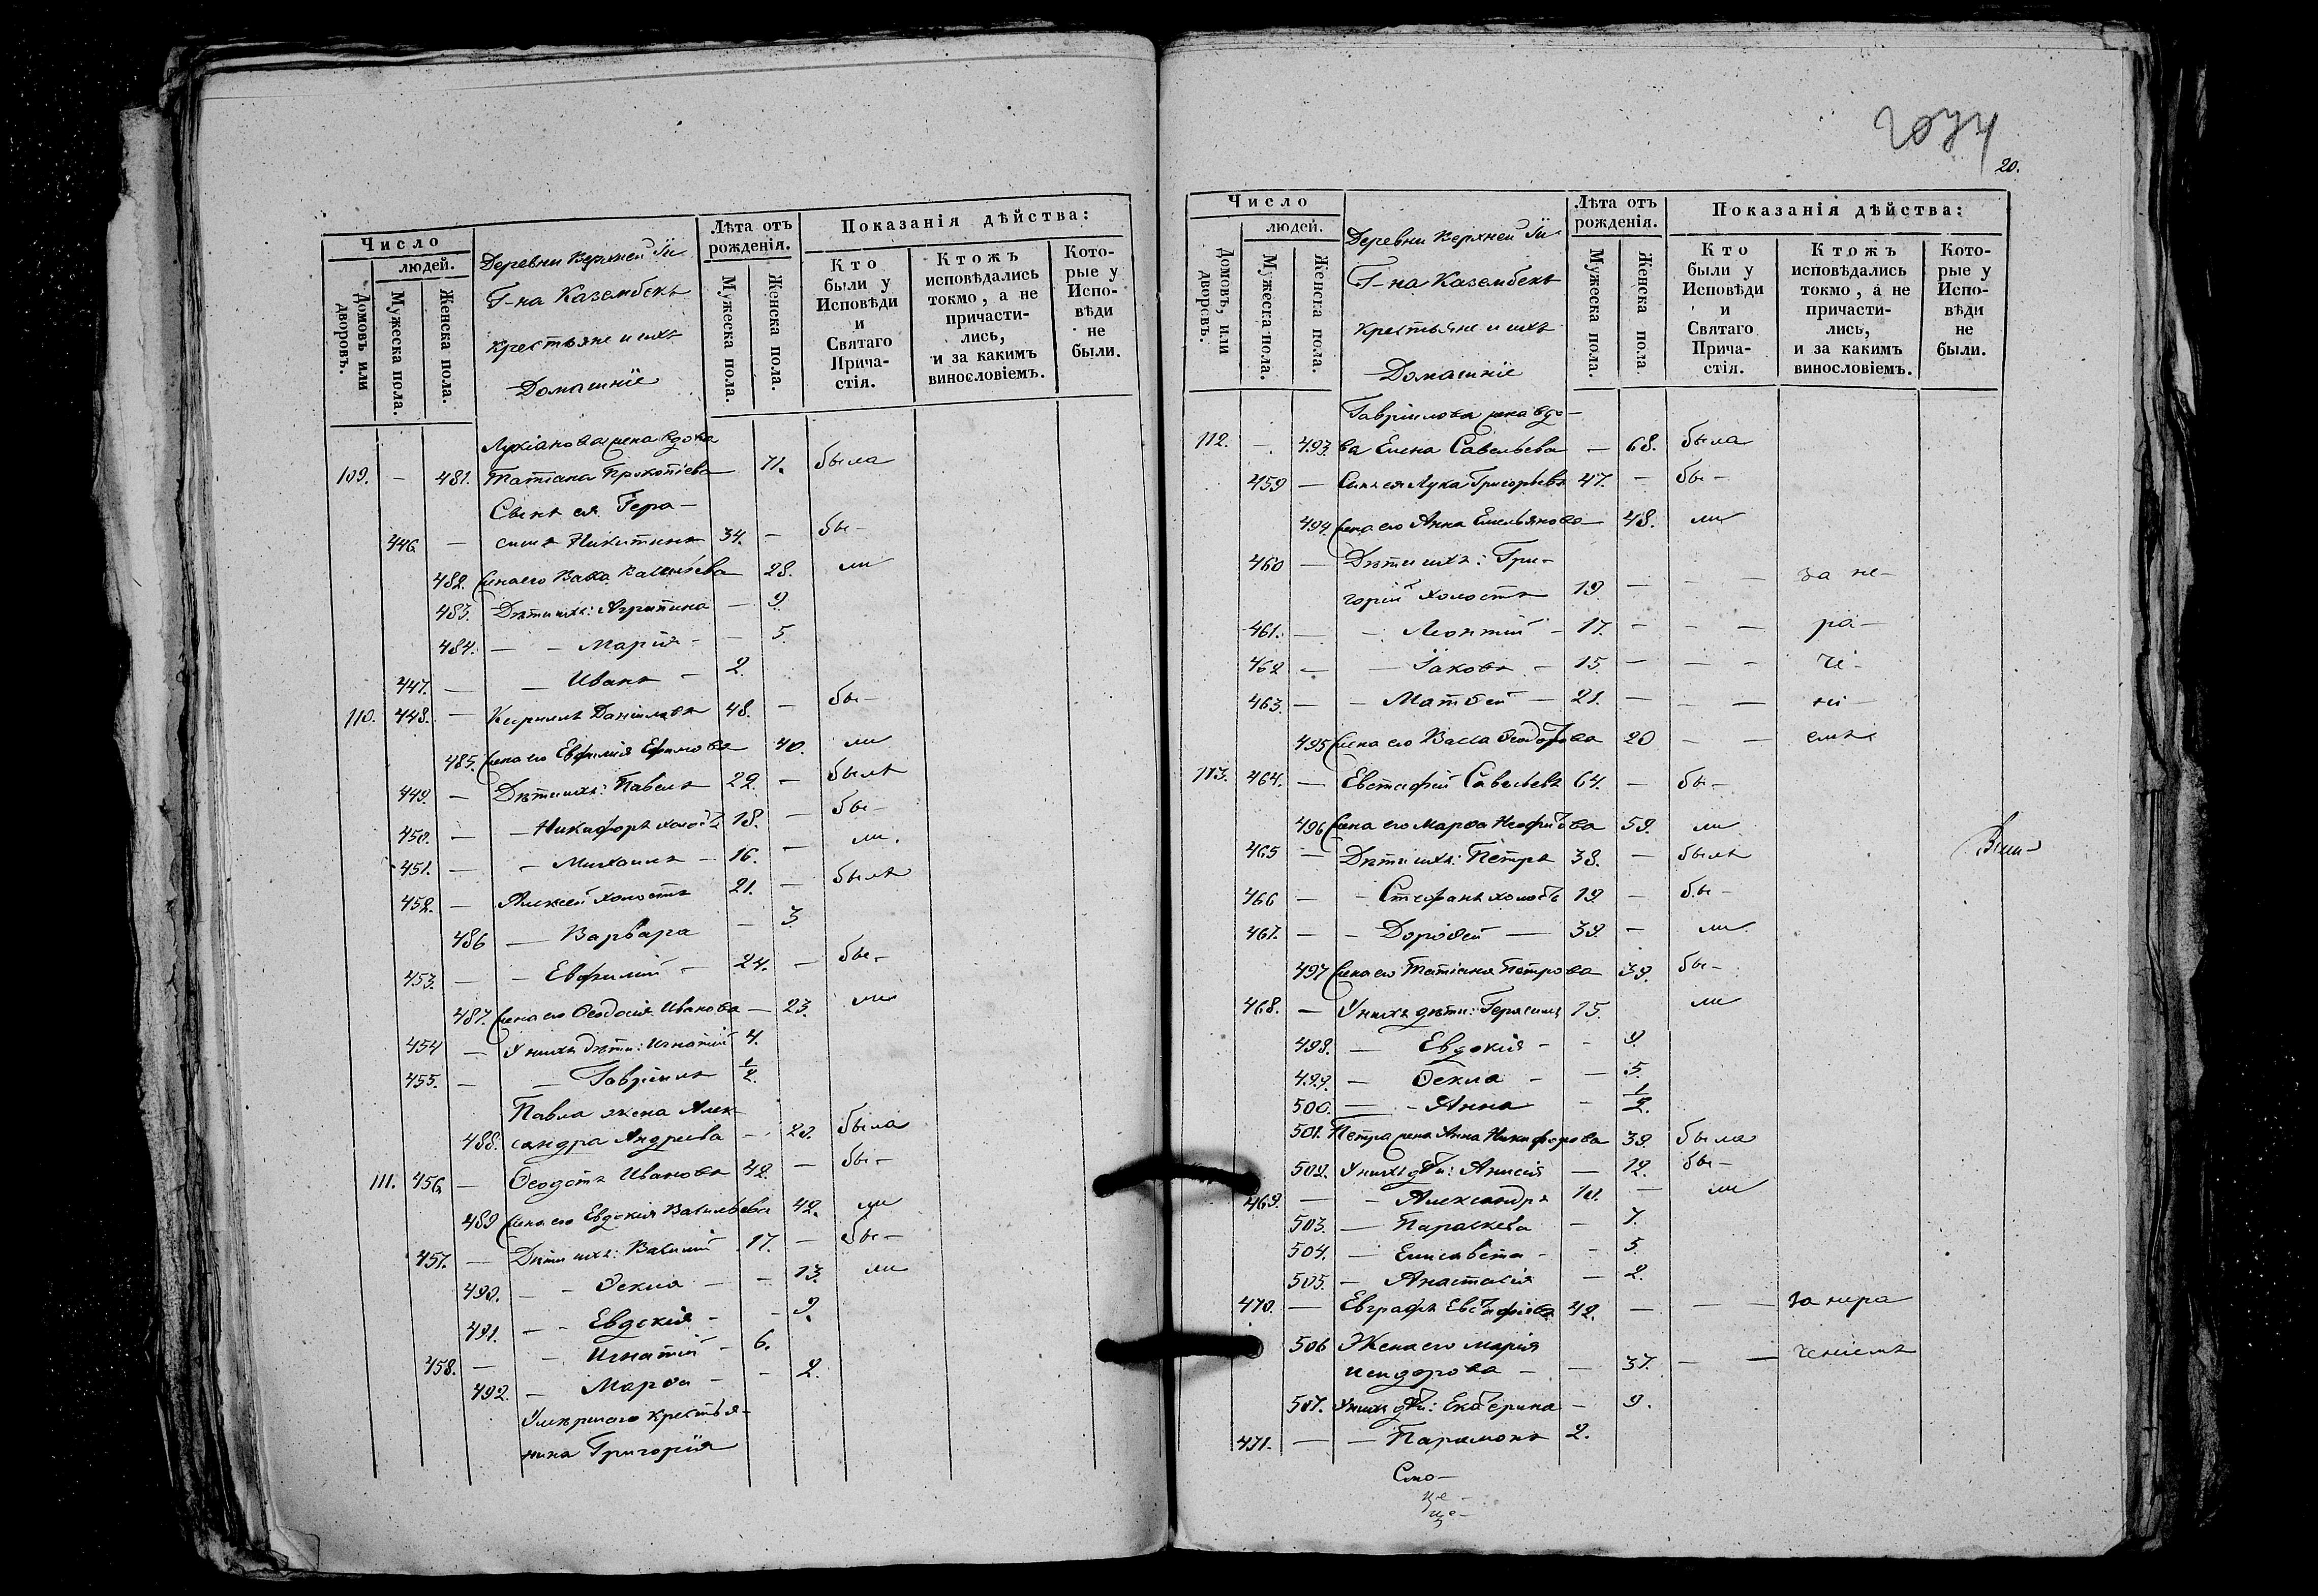 Число
людей.
Домовъ или дворовъ.
Мужеска пола.
Женска пола.
Деревни Верхней Ги-
Г-на Казембекъ
крестьяне и ихъ
Домашніе
Лѣта отъ рожденія.
Мужеска пола.
Женска пола.
Показанія дѣйства:
Кто были у Исповѣди и Святаго Причастія.
Ктожъ исповѣдались токмо, а не причастились, и за какимъ винословіемъ.
Которые у Исповѣди не были.
Лукіанова жена вдова
109. — 481. Татіана Прокопіева 71. была
Сынъ ея Гера-
446. — симъ Никитинъ 34. — бы-
482. Жена его Васса Васильева 28. ли
483. Дѣти ихъ: Агрипина — 9.
484. — — Марія — — 5.
447. — — Иванъ — 2.
110. 448. — Кириллъ Даніиловъ 48. — бы-
485. Жена его Евфимія Ефимова 40. ли
449. — Дѣти ихъ: Павелъ 22. — былъ
450. — — Никифоръ холостъ 18. — бы-
451. — — Михаилъ — 16. — ли.
452. — Алексей холостъ 21. — былъ
486 — Варвара — 3.
453. — — Евфимій — 24. — бы-
487. Жена его Ѳеодосія Иванова — 23. ли
454 — У нихъ дѣти: Игнатій 4.
455. — — Гавріилъ 1/2.
Павла жена Алек-
488. сандра Андреева — 22. была
111. 456. — Ѳеодотъ Ивановъ 42. — бы-
489 Жена его Евдокія Васильева 42. ли
457. — Дѣти ихъ: Василій 17. — бы-
490. — — Ѳекла — — 13. ли
491. — — Евдокія — — 9.
458. — — Игнатій — 6.
492. — Марѳа — — 2.
Умершаго крестья-
нина Григорія
2074
20.
Число
людей.
Домовъ, или дворовъ.
Мужеска пола.
Женска пола.
Деревни Верхней Ги-
Г-на Казембекъ
крестьяне и ихъ
Домашніе
Лѣта отъ рожденія.
Мужеска пола.
Женска пола
Показанія дѣйства:
Кто были у Исповѣди и Святаго Причастія.
Ктожъ исповѣдались токмо, а не причастились, и за какимъ винословіемъ.
Которые у Исповѣди не были.
Гавріилова жена вдо-
112. — 493. ва Елена Савельева — 68. была
459 — Сынъ ея Лука Григорьевъ 47. — бы-
494. Жена его Анна Емельянова — 48. ли
460 — Дѣти ихъ: Гри-
горій холостъ 19 — — — за не-
461. — — Леонтій — 17. — — — ра-
462 — — Іаковъ — 15 — — — че-
463. — — Матѳей — 21. — — — ні-
495 Жена его Васса Ѳеодорова 20 — — емъ
113. 464. — Евстафій Савельевъ 64. — бы-
496 Жена его Марѳа Неофитова 59. ли
465 — Дѣти ихъ: Петръ 38. — былъ
466 — — Стефанъ холостъ 19 — бы-
467. — — Дороѳей — 39. — ли
497 Жена его Татіана Петрова 39. бы-
468. — У нихъ дѣти: Герасимъ 15. ли
498. — Евдокія — — 9.
499. — Ѳекла — — 5.
500. — — Анна — 1/2.
501. Петра жена Анна Никифорова 39. была
502. У нихъ дѣти: Анисія — 12. бы-
469. — — Александръ 10. — ли
503. — Параскева — 7.
504. — Елисавета — — 5.
505. — Анастасія — 2.
470. — Евграфъ Евстафіевъ 42. — — — за нера
506 Жена его Марія
Исидорова — — 37. — — ченіемъ
507. У нихъ дѣти: Екатерина — 9.
471. — — Парамонъ 2.